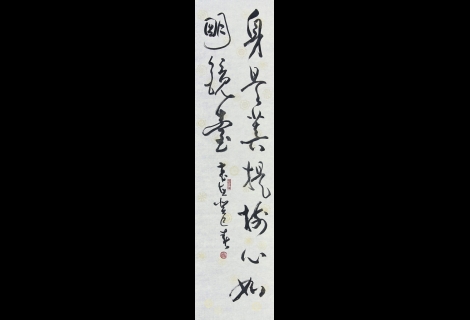 身是菩提樹心如
明鏡臺